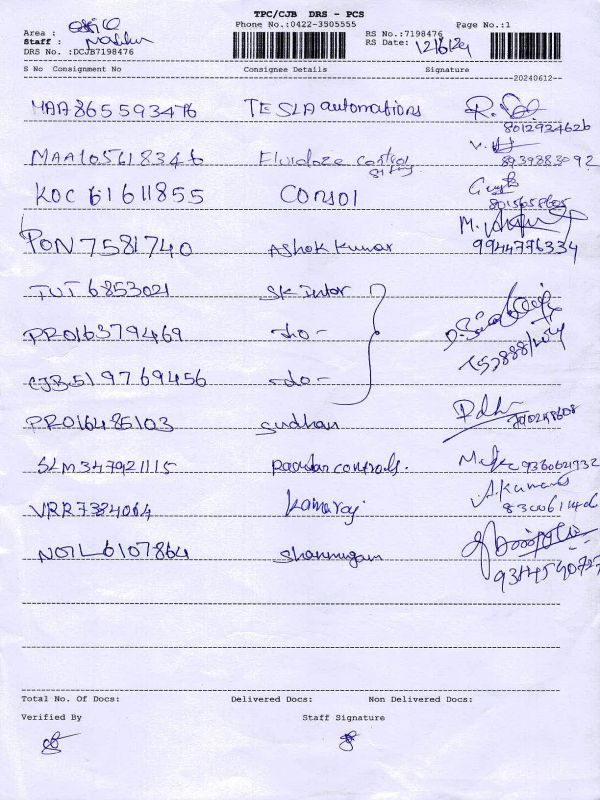 TPC/CJB DRS - PCS
Phone No.:0422-3505555 Page No.:1
Area :
Staff : RS No.:7198476
DRS No. :DCJB7198476 RS Date: 12/6/24
S No Consignment No Consignee Details Signature
20240612
MAA865593476 TESLA automations
8012924626
MAA105618346 Fluidoze control
8939883092
KOC 61611855 Consol
PON 7581740 Ashok kumar 9944776334
TUT 6853021 SK Inter
PRO16379469 -do-
CJB519769456 -do-
PRO16485103 Sudhan
SLM347921115 controls. 9360621732
VRR7384064 Kamaraj A.Kumar
830061140
NOIL6107864 Shanmugam
Total No. Of Docs: Delivered Docs: Non Delivered Docs:
Verified By Staff Signature